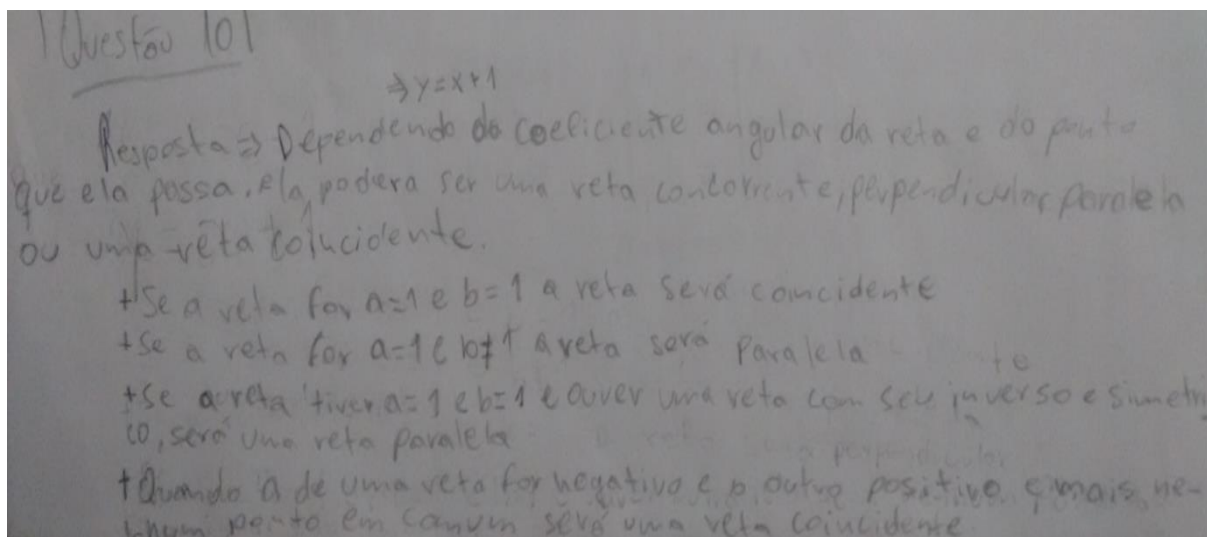 Questão 101
⇒ y=x+1
Resposta ⇒ Dependendo do coeficiente angular da reta e do ponto
que ela passa, ela podera ser uma reta concorrente, perpendicular paralela
ou uma reta coincidente.
+ Se a reta for a=1 e b=1 a reta será coincidente
+ Se a reta for a=1 e b≠1 a reta será paralela
+ Se a reta tiver a=1 e b=1 e ouver uma reta com seu inverso e simetri
co, será uma reta paralela
+ Quando a de uma reta for negativo e o outro positivo e mais ne-
nhum ponto em comum será uma reta coincidente